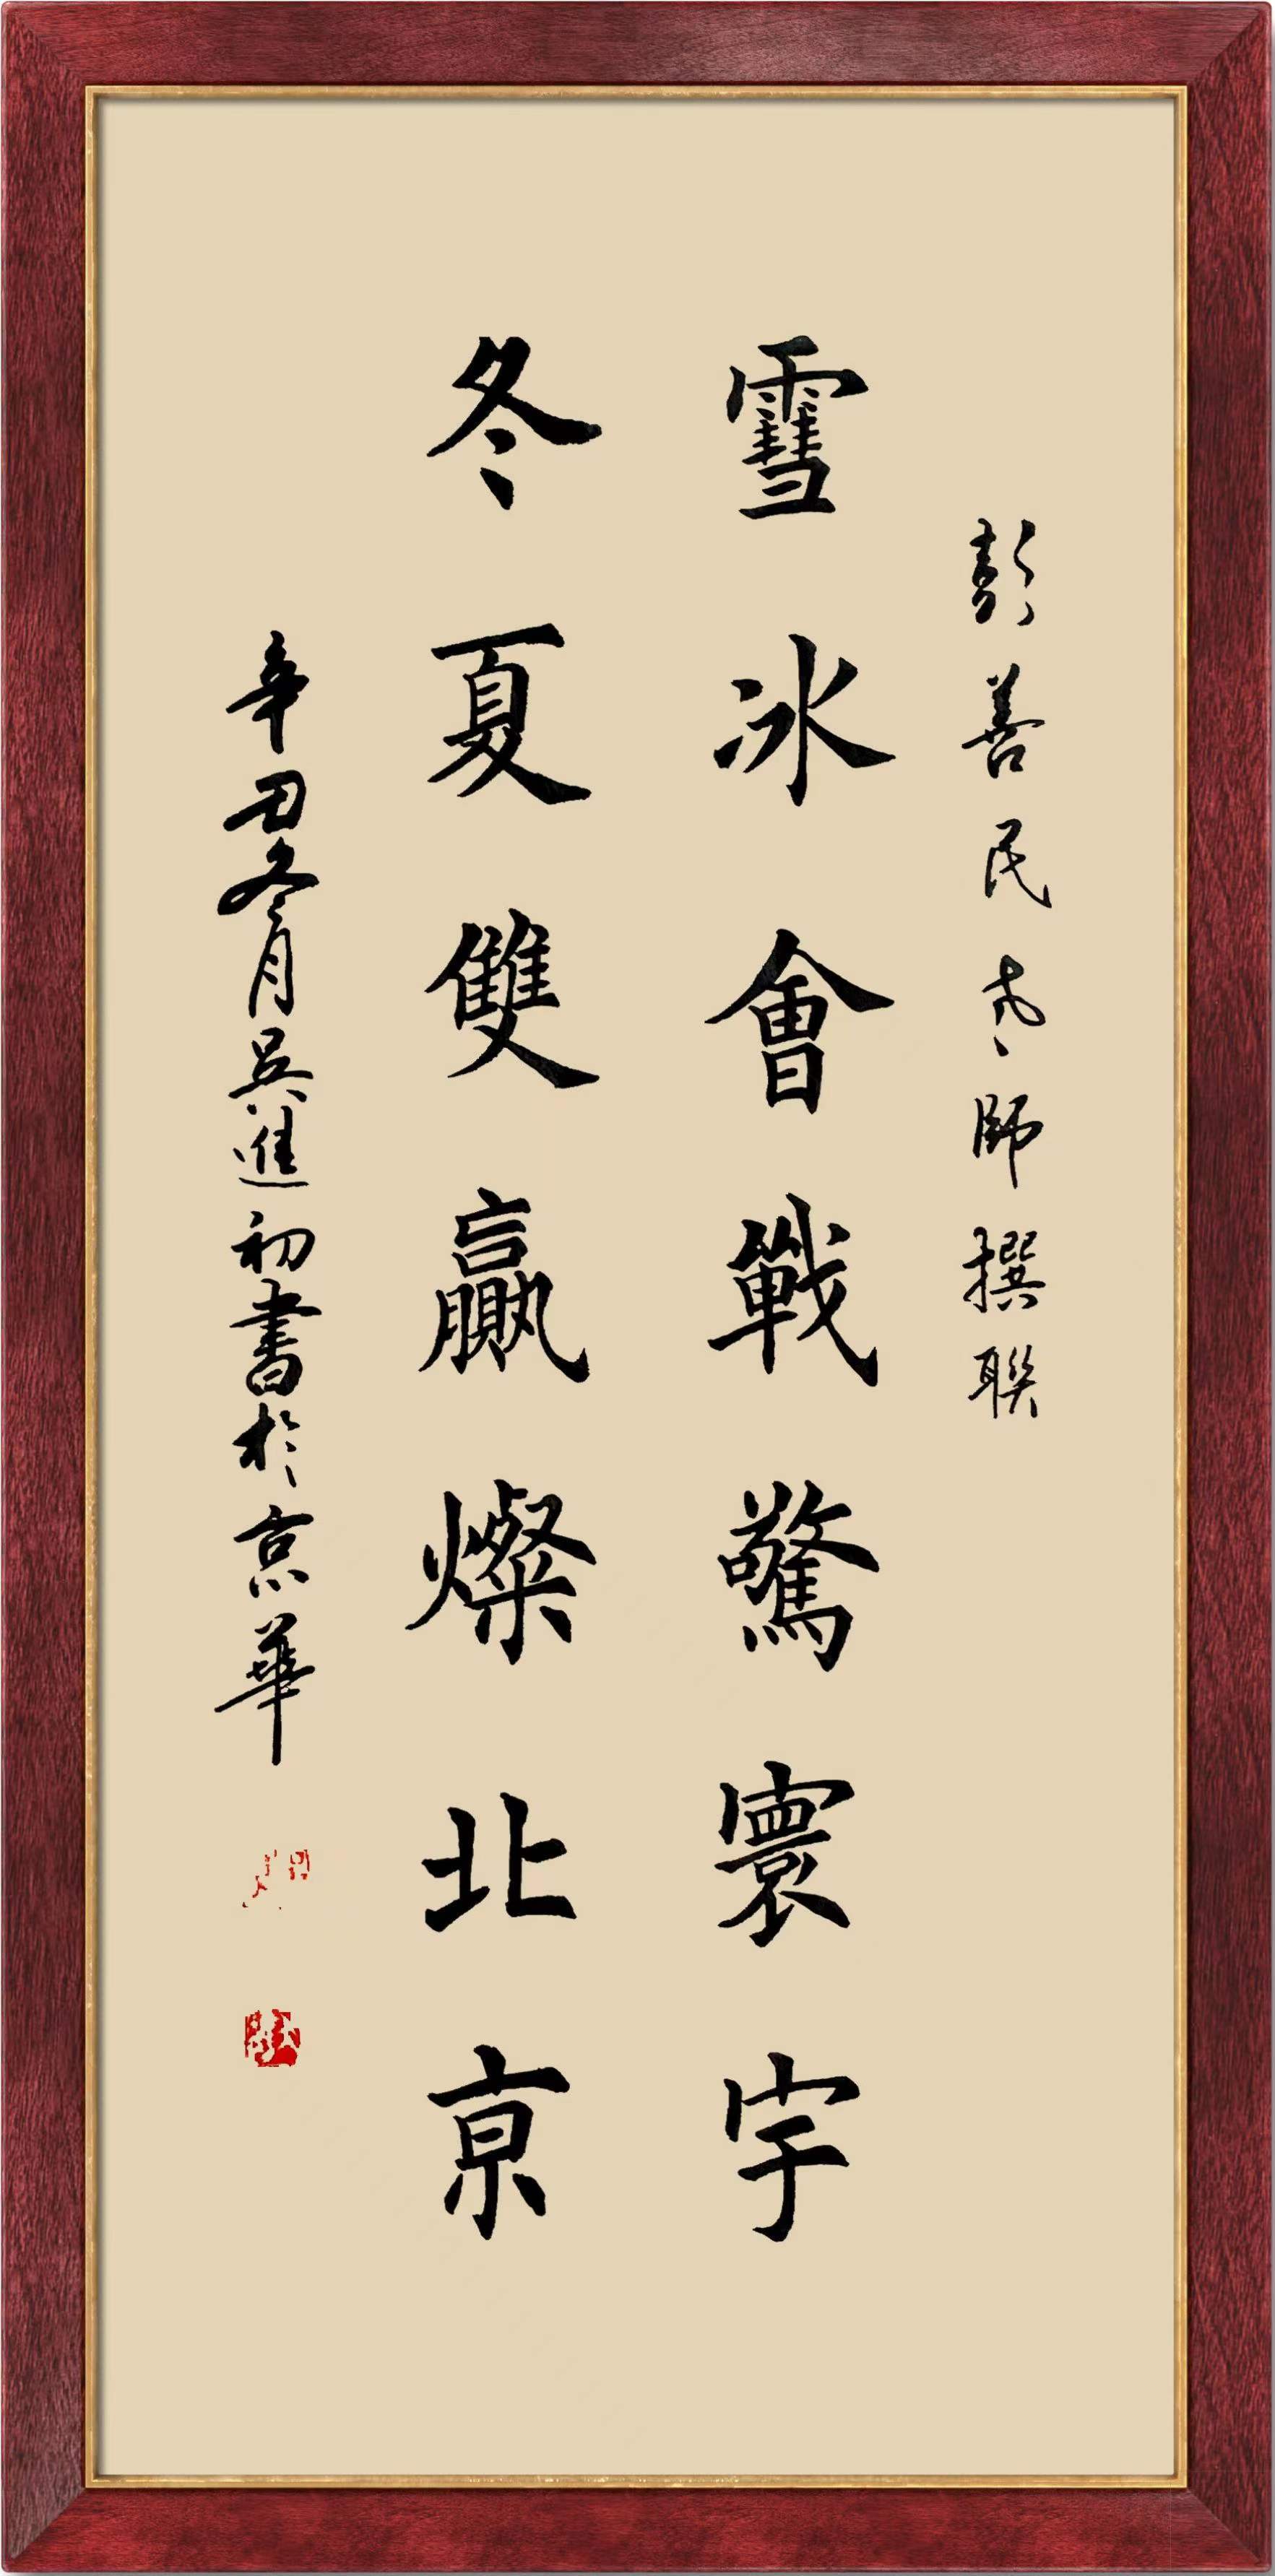 彭善民老師撰聯
雪冰會戰驚寰宇
冬夏雙贏燦北京
辛丑冬月吳進初書於京華